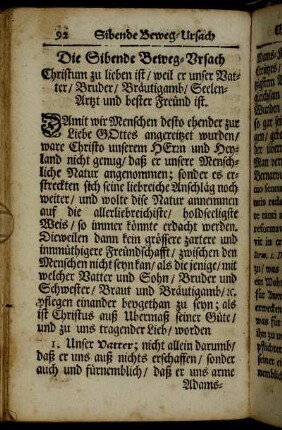 92 Sibende Beweg-Ursach
Die Sibende Beweg-Ursach
Christum zu lieben ist/ weil er unser Vat-
ter/ Bruder/ Bräutigamb/ Seelen-
Artzt und bester Freünd ist.
Damit wir Menschen desto ehender zur
Liebe GOttes angereitzet wurden/
ware Christo unserem HErrn und Hey-
land nicht genug/ daß er unsere Mensch-
liche Natur angenommen; sonder es er-
streckten sich seine liebreiche Anschläg noch
weiter/ und wolte dise Natur annemmen
auf die allerliebreichiste/ holdseeligste
Weis/ so immer könnte erdacht werden.
Dieweilen dann kein grössere zartere und
immüthigere Freundschafft/ zwischen den
Menschen nicht seyn kan/ als die jenige/ mit
welcher Vatter und Sohn/ Bruder und
Schwester/ Braut und Bräutigamb/ ꝛc.
pflegen einander beygethan zu seyn; als
ist Christus auß Ubermaß seiner Güte/
und zu uns tragender Lieb/ worden
1. Unser Vatter; nicht allein darumb/
daß er uns auß nichts erschaffen/ sonder
auch und fürnemblich/ daß er uns arme
Adams-